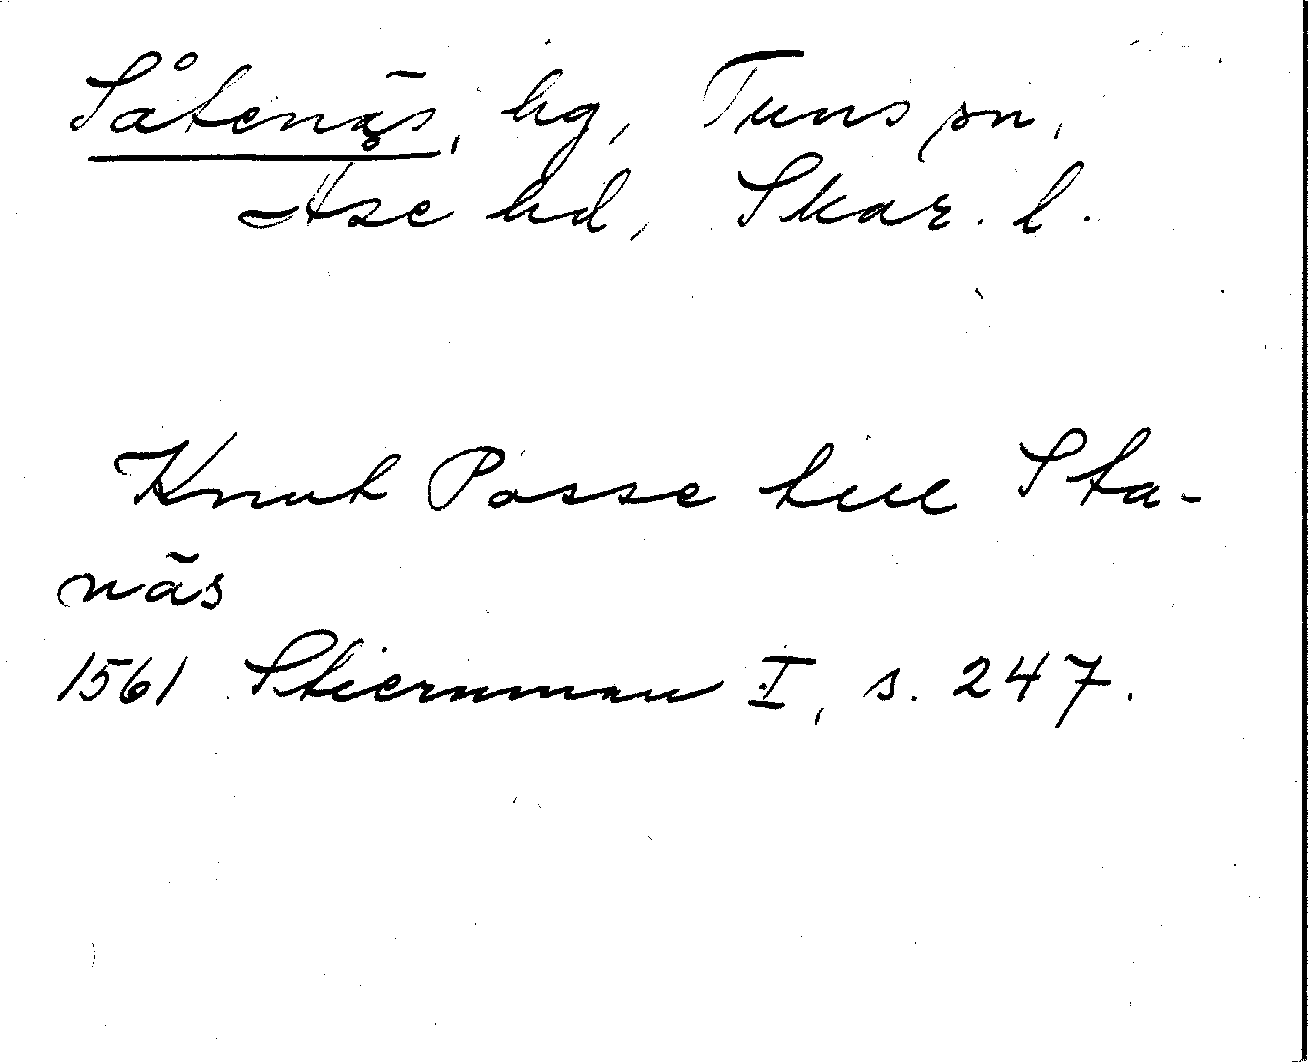 Såtenäs, hg, Tuns sn,
Åse hd, Skar. l.
Knut Posse till Sta-
näs
1561 Stiernman I, s. 247.